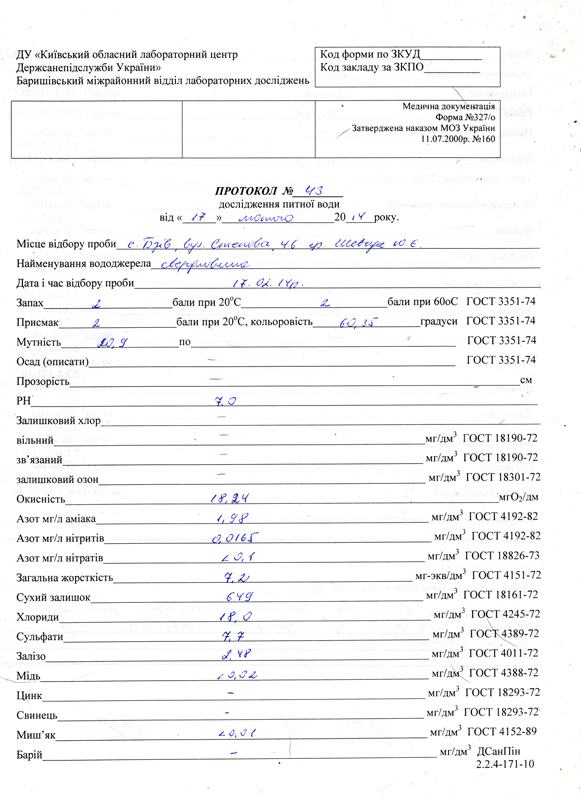 ДУ «Київський обласний лабораторний центр
Держсанепідслужби України»
Баришівський міжрайонний відділ лабораторних досліджень
Код форми по ЗКУД___________
Код закладу за ЗКПО__________
Медична документація
Форма №327/о
Затверджена наказом МОЗ України
11.07.2000р. №160
ПРОТОКОЛ № 43
дослідження питної води
від « 17 » лютого 20 14 року.
Місце відбору проби с. Бзів, вул. Степова, 46 гр. Шевчук Ю.Є.
Найменування вододжерела свердловина
Дата і час відбору проби 17.02.14р.
Запах 2 бали при 20⁰С 2 бали при 60оС ГОСТ 3351-74
Присмак 2 бали при 20⁰С, кольоровість 60,35 градуси ГОСТ 3351-74
Мутність 20,9 по ГОСТ 3351-74
Осад (описати) – ГОСТ 3351-74
Прозорість – см
РН 7,0
Залишковий хлор –
вільний – мг/дм³ ГОСТ 18190-72
зв'язаний – мг/дм³ ГОСТ 18190-72
залишковий озон – мг/дм³ ГОСТ 18301-72
Окисність 18,24 мгО₂/дм
Азот мг/л аміака 1,98 мг/дм³ ГОСТ 4192-82
Азот мг/л нітритів 0,0165 мг/дм³ ГОСТ 4192-82
Азот мг/л нітратів <0,1 мг/дм³ ГОСТ 18826-73
Загальна жорсткість 7,2 мг-экв/дм³ ГОСТ 4151-72
Сухий залишок 649 мг/дм³ ГОСТ 18161-72
Хлориди 18,0 мг/дм³ ГОСТ 4245-72
Сульфати 7,7 мг/дм³ ГОСТ 4389-72
Залізо 2,48 мг/дм³ ГОСТ 4011-72
Мідь <0,02 мг/дм³ ГОСТ 4388-72
Цинк – мг/дм³ ГОСТ 18293-72
Свинець – мг/дм³ ГОСТ 18293-72
Миш'як <0,01 мг/дм³ ГОСТ 4152-89
Барій – мг/дм³ ДСанПін
2.2.4-171-10